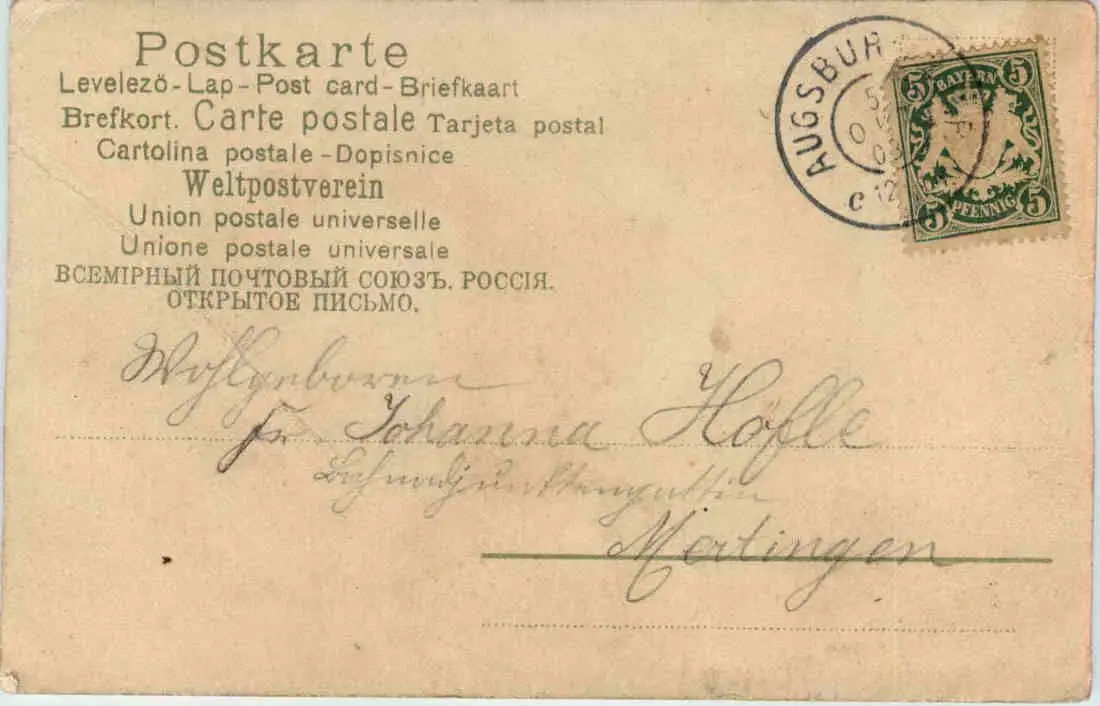 Postkarte
Levelező-Lap-Post card-Briefkaart
Brefkort. Carte postale Tarjeta postal
Cartolina postale-Dopisnice
Weltpostverein
Union postale universelle
Unione postale universale
ВСЕМІРНЫЙ ПОЧТОВЫЙ СОЮЗЪ. РОССІЯ.
ОТКРЫТОЕ ПИСЬМО.
AUGSBUR
C 12
5 BAYERN 5
5 PFENNIG 5
Wohlgeboren
Fr. Johanna Höfle
Bahnadjunktengattin
Mertingen